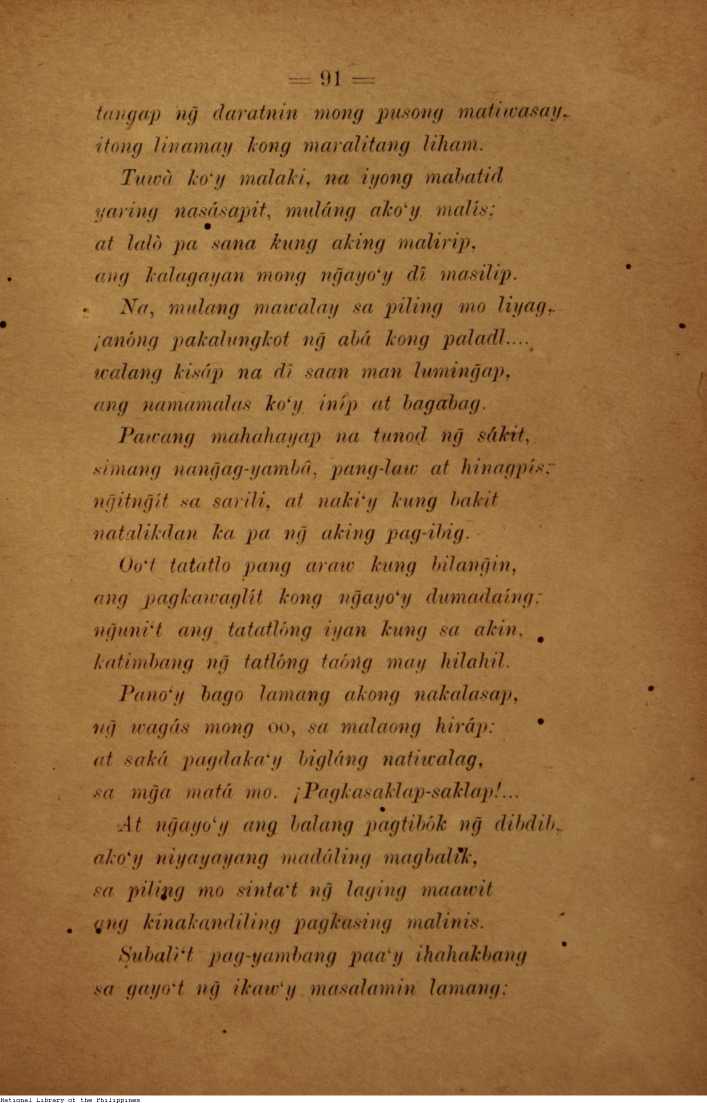 = 91 =
tangap ng̃ daratnin mong pusong matiwasay,
itong linamay kong maralitang liham.
Tuwà ko‘y malaki, na iyong mabatid
yaring nasásapit, muláng ako‘y malís;
at lalò pa sana kung aking malirip,
ang kalagayan mong ng̃ayo‘y dî masilip.
Na, mulang mawalay sa piling mo liyag,
¡anóng pakalungkot ng̃ abá kong palad!....
walang kisáp na dî saan man luming̃ap,
ang namamalas ko‘y iníp at bagabag.
Pawang mahahayap na tunod ng̃ sákit,
simang nang̃ag-yambâ, pang-law at hinagpís;
ng̃itng̃ít sa sarili, at naki‘y kung bakit
natalikdan ka pa ng̃ aking pag-ibig.
Oo‘t tatatlo pang araw kung bilang̃in,
ang pagkawaglít kong ng̃ayo‘y dumadaíng;
ng̃uni‘t ang tatatlóng iyan kung sa akin,
katimbang ng̃ tatlóng taóng may hilahil.
Pano‘y bago lamang akong nakalasap,
ng̃ wagás mong oo, sa malaong hiráp;
at saká pagdaka‘y bigláng natiwalag,
sa mg̃a matá mo. ¡Pagkasaklap-saklap!...
At ng̃ayo‘y ang balang pagtibók ng̃ dibdib,
ako‘y niyayayang madáling magbalík,
sa piling mo sinta‘t ng̃ laging maawit
ang kinakandiling pagkasing malinis.
Subali‘t pag-yambang paa‘y ihahakbang
sa gayo‘t ng̃ ikaw‘y masalamin lamang;
National Library of the Philippines